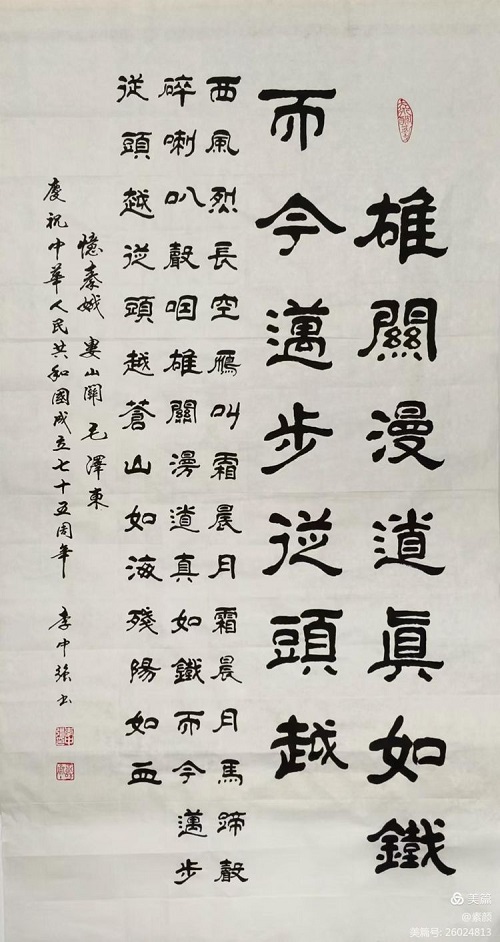 雄關漫道眞如鐵
而今邁步從頭越
西風烈長空雁叫霜晨月霜晨月馬蹄聲
碎喇叭聲咽雄關漫道真如鐵而今邁步
從頭越從頭越蒼山如海殘陽如血
憶秦娥 婁山關 毛澤東
慶祝中華人民共和國成立七十五周年 李中強书
美篇
@素颜
美篇号: 26024813